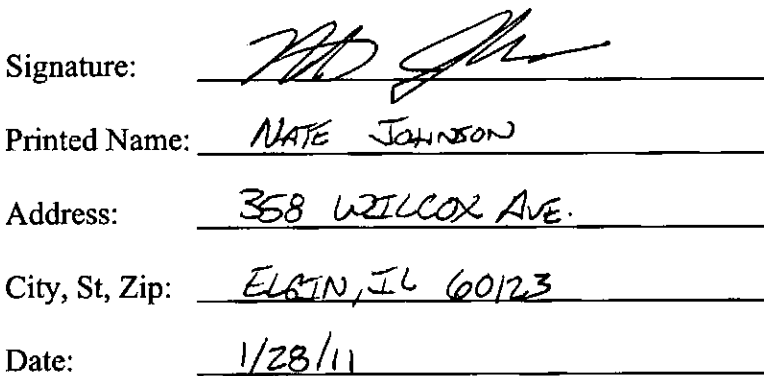 Signature:
Printed Name: NATE JOHNSON
Address: 358 WILCOX AVE.
City, St, Zip: ELGIN, IL 60123
Date: 1/28/11